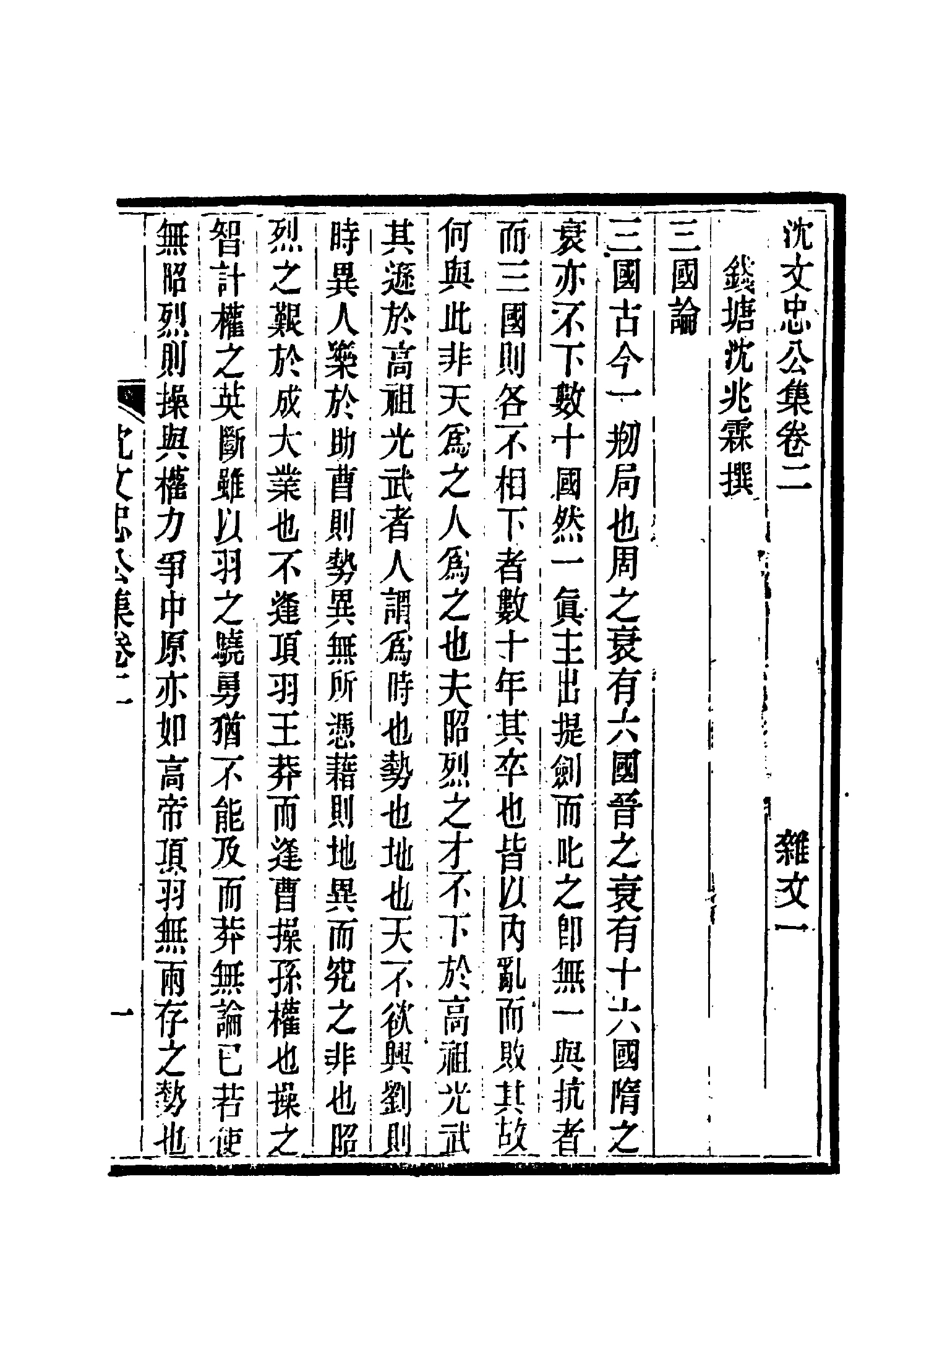 沈文忠公集卷二 雜文一
錢塘沈兆霖撰
三國論
三國古今一剏局也周之衰有六國晉之衰有十六國隋之
衰亦不下數十國然一眞主出提劍而叱之卽無一與抗者
而三國則各不相下者數十年其卒也皆以內亂而敗其故
何與此非天爲之人爲之也夫昭烈之才不下於高祖光武
其遜於高祖光武者人謂爲時也勢也地也天不欲興劉則
時異人樂於助曹則勢異無所憑藉則地異而究之非也昭
烈之艱於成大業也不逢項羽王莽而逢曹操孫權也操之
智計權之英斷雖以羽之驍勇猶不能及而莽無論已若使
無昭烈則操與權力爭中原亦如高帝項羽無兩存之勢也
沈文忠公集卷二 一